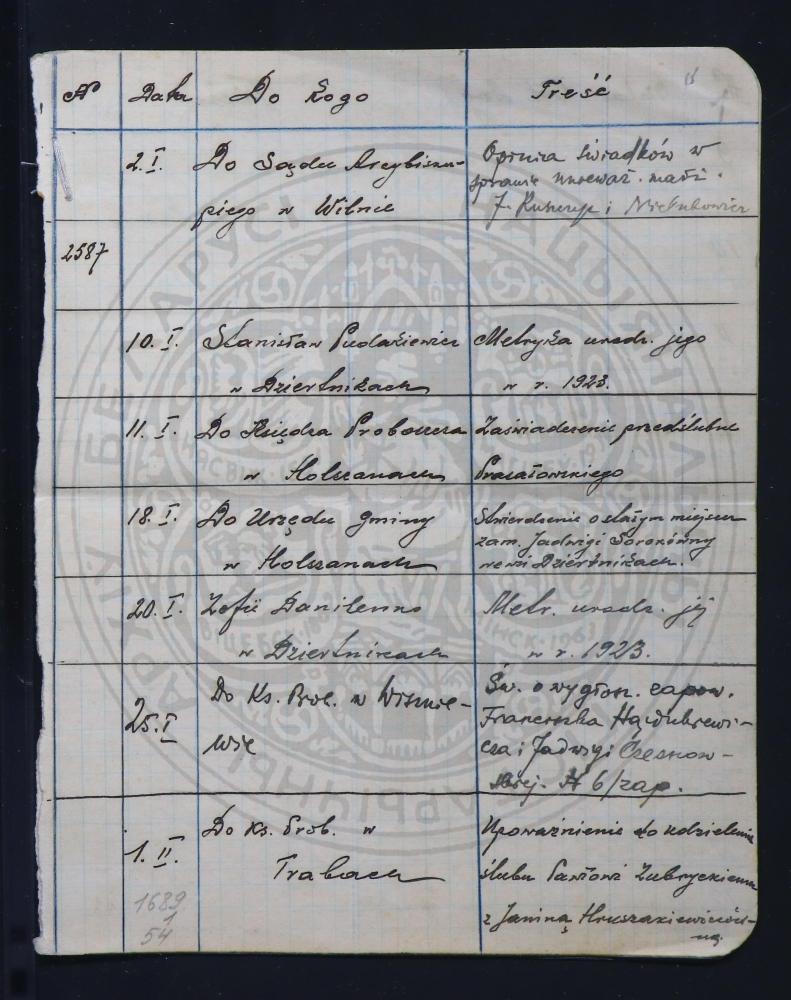 № Data Do Kogo Treść
15
2. I. Do Sądu Arcybisku- Opinia świadków w
piego w Wilnie sprawie unieważ. małż.
J. i
2587
10. I. Stanisław Pudakiewicz Metryka urodz. jego
w Dziertnikach w r. 1923.
11. I. Do Księdza Proboszcza Zaświadczenie przedślubne
w Holszanach
18. I. Do Urzędu gminy Stwierdzenie o stałym miejscu
zam. Jadwigi Sorokówny
w Holszanach we wsi Dziertnikach.
20. I. Zofii Danilenko Metr. urodz. jej
w Dziertnikach w r. 1923.
25. I Do Ks. Prob. w Wisznie- Św. o wygłosz. zapow.
wie Franciszka Hajdukiewi-
cza i Jadwigi Czesnow-
skiej. № 6/zap.
1. II. Do Ks. Prob. w Upoważnienie do udzielenia
Trabach ślubu Pawłowi Zubryckiemu
z Janiną Hruszakiewiczów-
ną.
1689
1
54